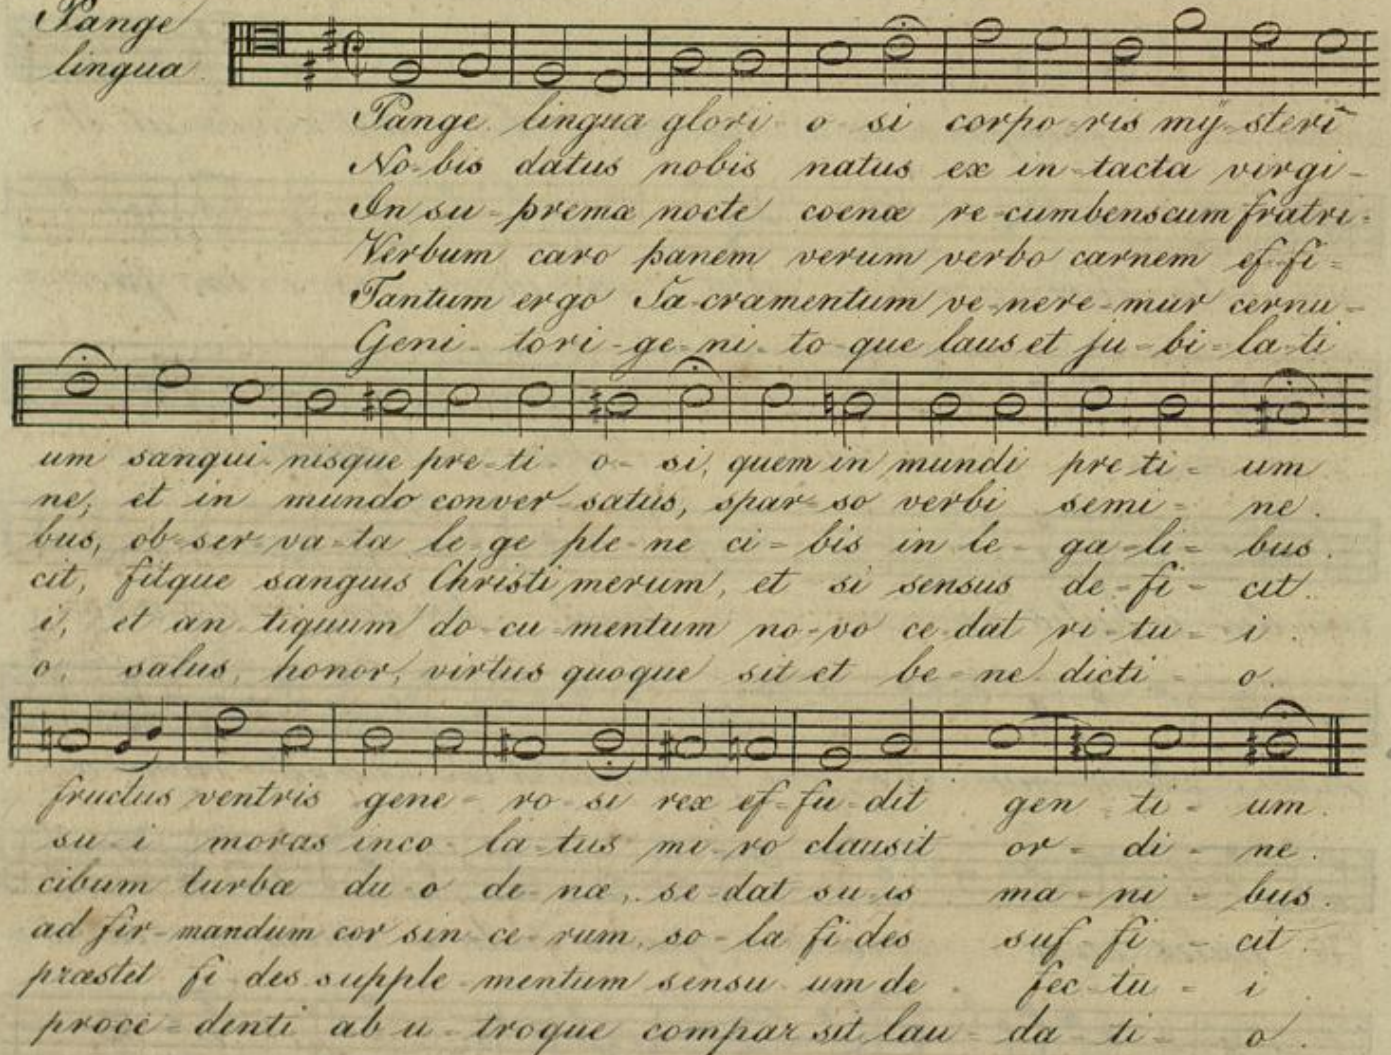 Pange
lingua
Pange lingua glori- o- si corpo-ris mÿ-steri-
No-bis datus nobis natus ex in-tacta virgi-
In su-premæ nocte coenæ re-cumbens cum fratri-
Verbum caro panem verum verbo carnem ef-fi-
Tantum ergo Sa-cramentum ve-nere-mur cernu-
Geni-tori-ge-ni-to-que laus et ju-bi-la-ti
um sangui-nisque pre-ti-o-si, quem in mundi pre ti- um
ne, et in mundo conver-satus, spar-so verbi semi- ne.
bus, ob-ser-va-ta le-ge ple-ne ci-bis in le-ga-li-bus.
cit, fitque sanguis Christi merum, et si sensus de-fi-cit.
i, et an tiquum do-cu-mentum no-vo ce-dat ri-tu-i.
o, salus, honor, virtus quoque sit et be-ne dicti-o.
fructus ventris gene-ro-si rex ef-fu-dit gen-ti-um.
su-i moras inco-la-tus mi-ro clausit or-di-ne.
cibum turbæ du o de-næ, se-dat su-is ma-ni-bus.
ad fir-mandum cor sin-ce-rum, so-la fi-des suf fi-cit.
præstet fi-des supple-mentum sensu-um de-fec-tu-i
proce-denti ab u-troque compar sit lau-da-ti-o.